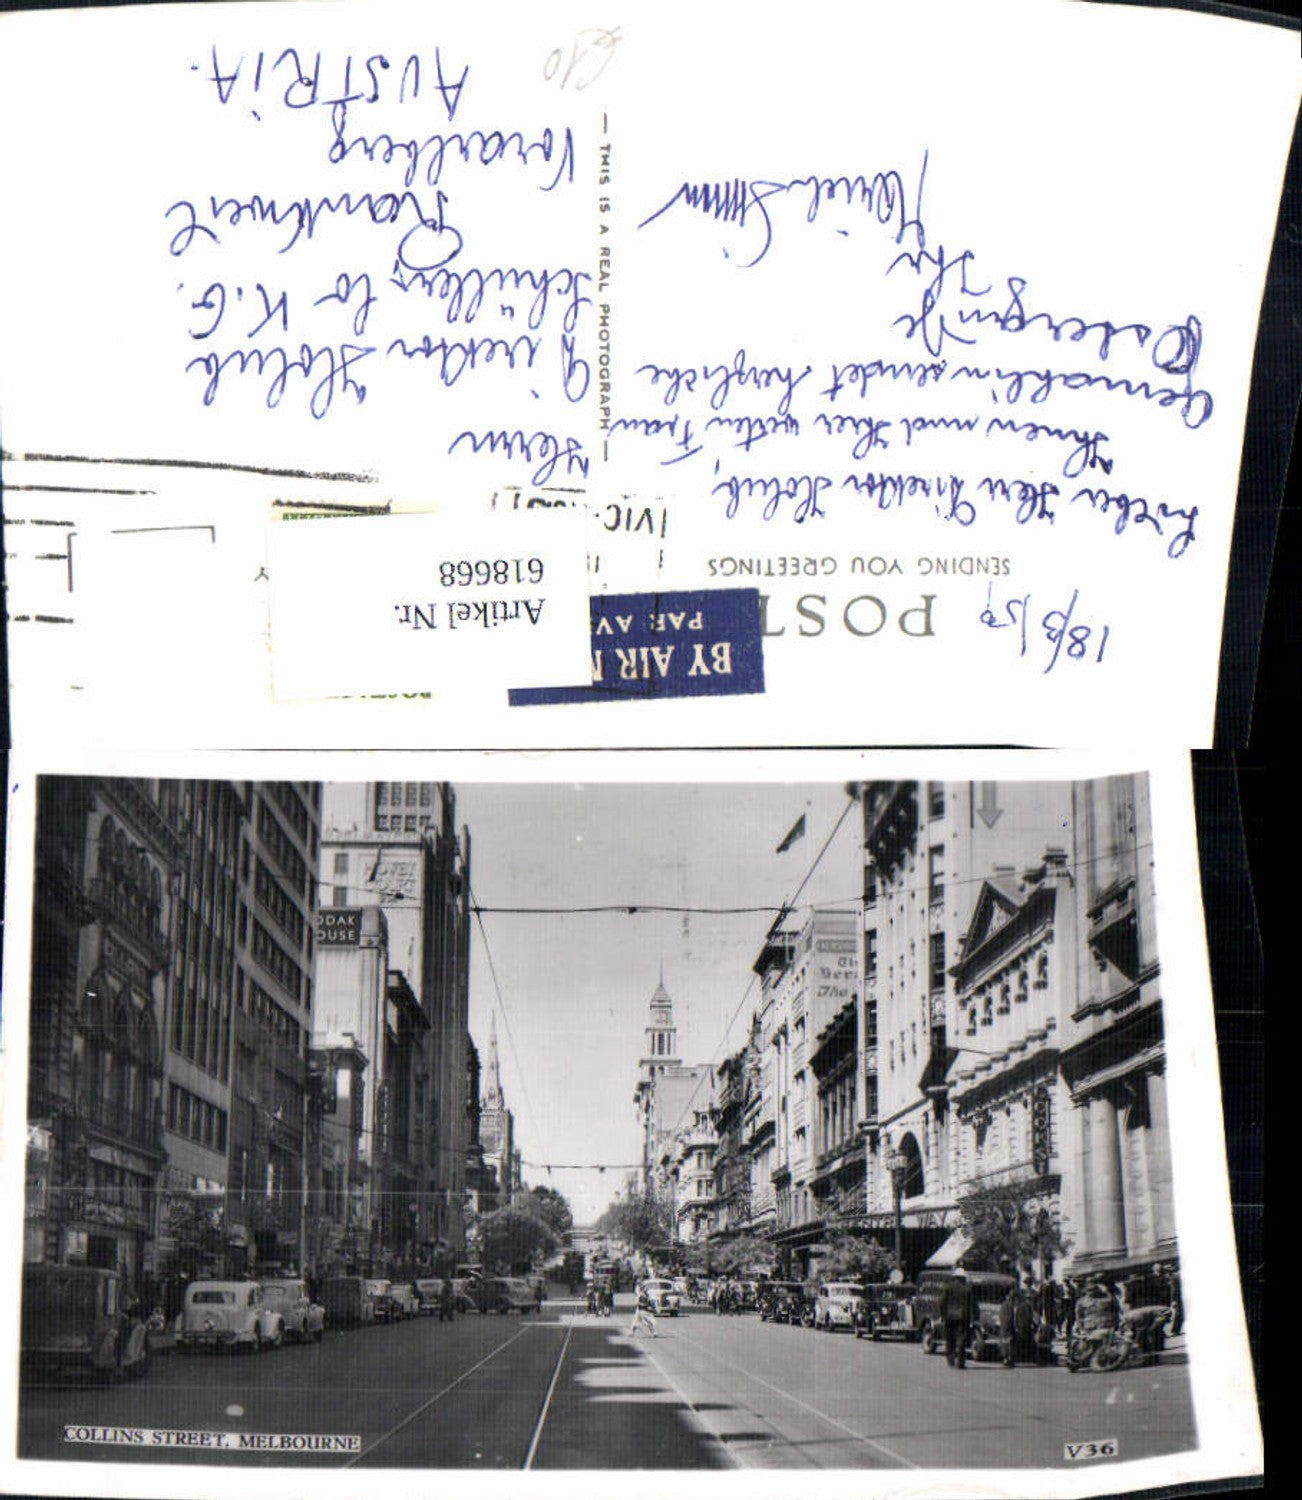 18/3/50
POST
SENDING YOU GREETINGS
BY AIR M
PAR AV
Artikel Nr.
618668
VIC
Lieber Herr Direktor Holub,
Ihnen und Ihrer werten Frau
Gemahlin sendet herzliche
Ostergrüße
Ihr
— THIS IS A REAL PHOTOGRAPH —
Herrn
Direktor Holub
Schüllers Co K.G.
Rankweil
Vorarlberg
AUSTRIA.
ODAK
OUSE
HOTEL
COLLINS STREET, MELBOURNE
V36